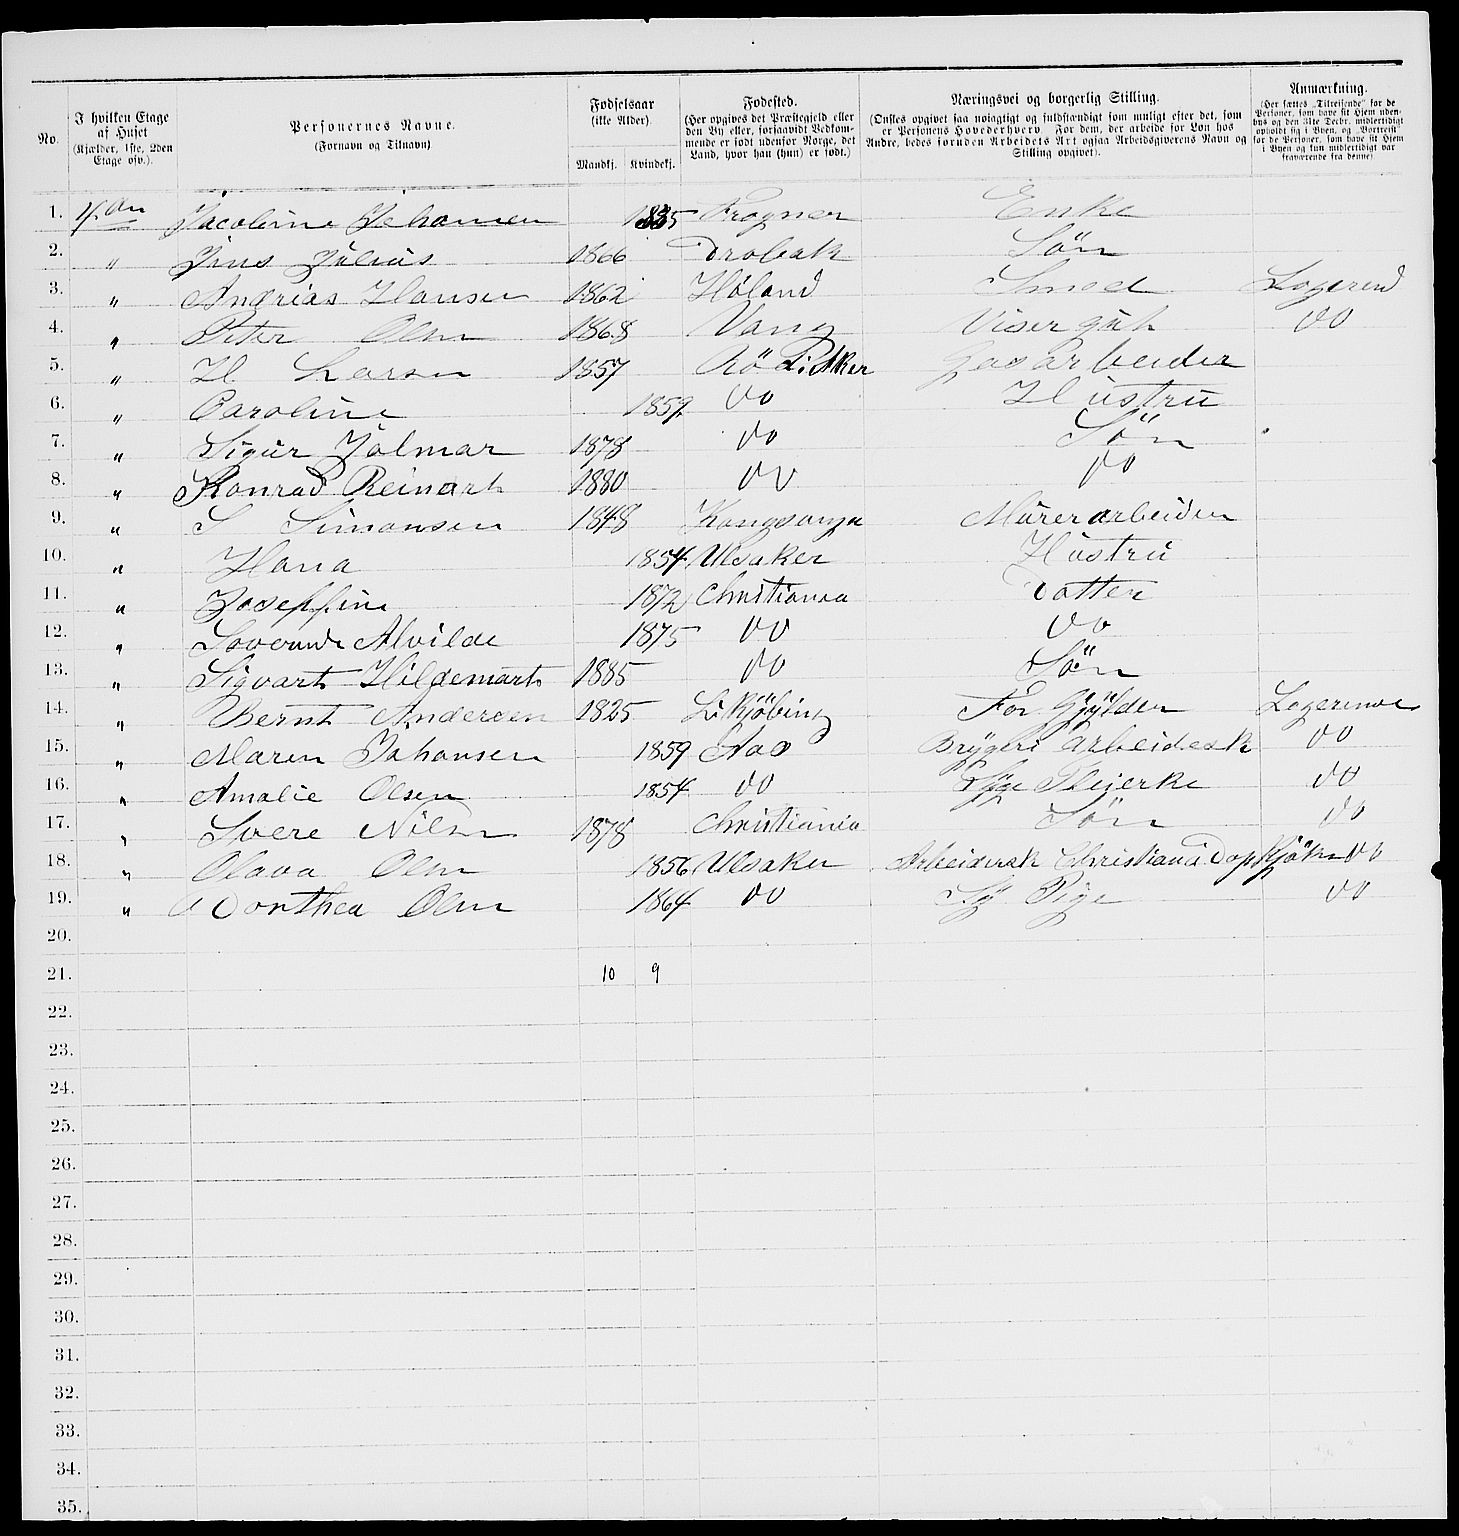 No.
I hvilken Etage af Huset (Kjælder, 1ste, 2den Etage osv.).
Personernes Navne. (Fornavn og Tilnavn)
Fødselsaar (ikke Alder). Mandkj. Kvindekj.
Fødested. (Her opgives det Præstegjeld eller den By eller, forsaavidt Vedkommende er født udenfor Norge, det Land, hvor han (hun) er født.)
Næringsvei og borgerlig Stilling. (Ønskes opgivet saa nøiagtigt og fuldstændigt som muligt efter det, som er Personens Hovederhverv. For dem, der arbeide for Løn hos Andre, bedes foruden Arbeidets Art ogsaa Arbeidsgiverens Navn og Stilling opgivet).
Anmærkning. (Her sættes „Tilreisende“ for de Personer, som have sit Hjem udenbys og den 31te Decbr. midlertidigt opholdt sig i Byen, og „Bortreist“ for de Personer, som have sit Hjem i Byen og kun midlertidigt var fraværende fra denne)
1. Jacobine Johansen 1835 Frogner Enke
2. " Jins Julius 1866 Drøbak Sön
3. " Andrias Hansen 1862 Höland Smed Logerend
4. " Peter Olsn 1868 Vang Visergut Do
5. " H. Larsen 1857 Gasarbeider
6. " Caroline 1859 Do Hustru
7. " Sigur Jalmar 1878 Do Sön
8. " Konrad Reinart 1880 Do Do
9. " S Simonsen 1848 Murerarbeider
10. " Hana 1854 Ulsaker Hustru
11. " Joseffine 1872 Christiania Datter
12. " Alvilde 1875 Do Do
13. " Sigvart Hildemart 1885 Do Sön
14. " Bernt Andersen 1825 Likjöbing For Gylder Logerende
15. " Maren Johansen 1859 Aas Brygeri arbeidesk Do
16. " Amalie Olsen 1854 Do Syge Pleierke Do
17. " Svere Nilsn 1878 Christiania Sön Do
18. " Olava Olsn 1856 Ulsaker Arbeidersk Christiania Dapkjökn Do
19. " Dorthea Olsn 1864 Do Sy Pige Do
20.
21. 10 9
22.
23.
24.
25.
26.
27.
28.
29.
30.
31.
32.
33.
34.
35.